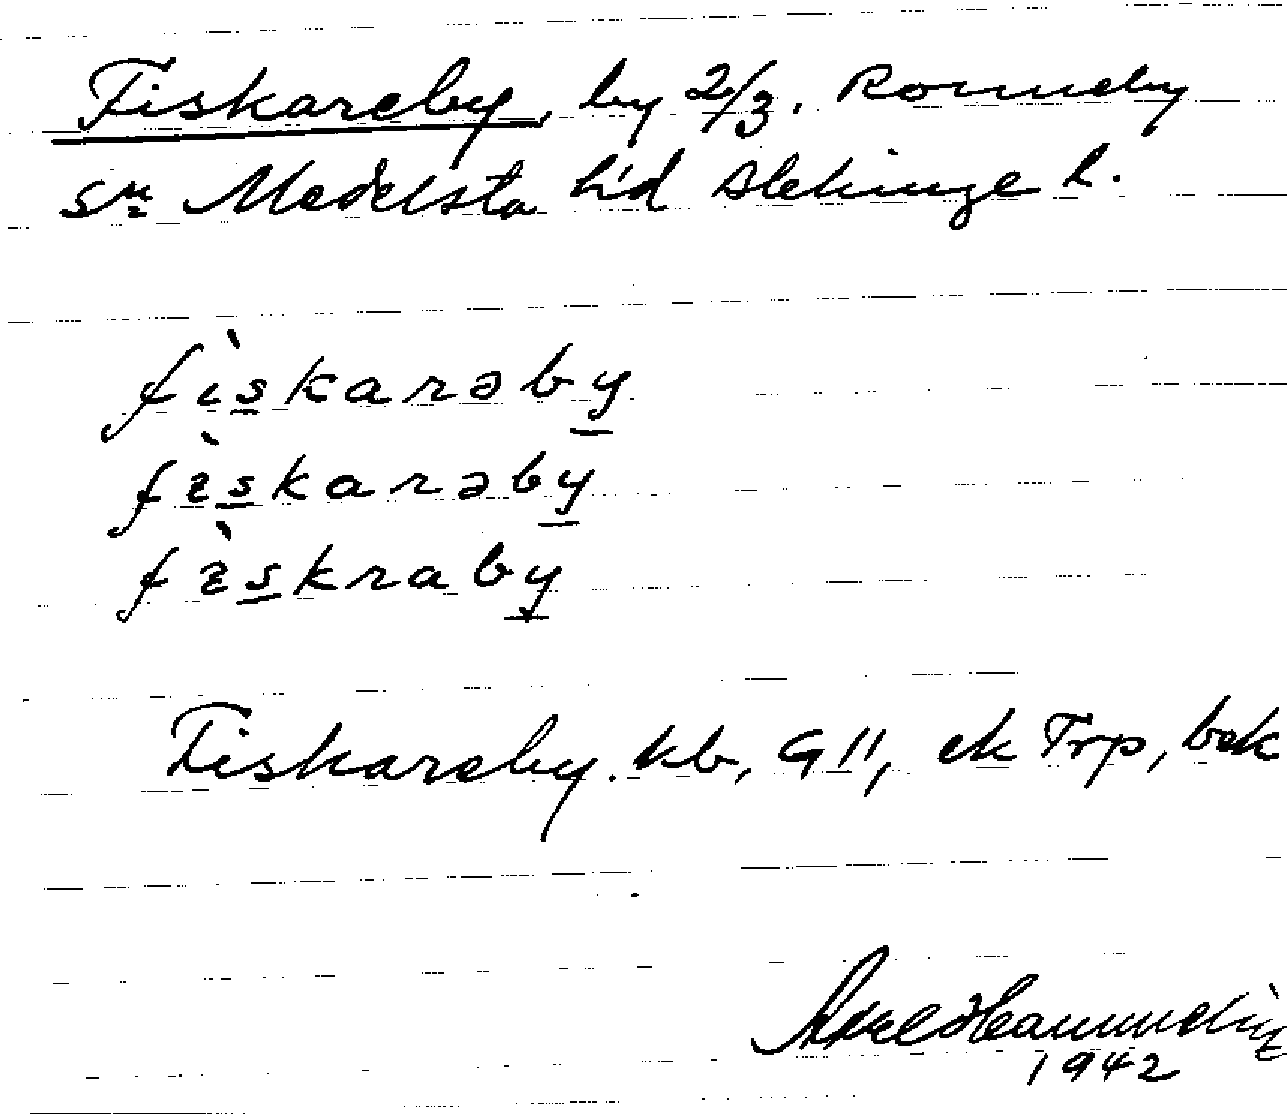 Fiskareby, by 2/3. Ronneby
sn Medelsta hd Blekinge l.
fìskarəby
fìskarəby
fìskraby
Fiskareby. kb, G 11, ek Trp, bek
Axel
1942